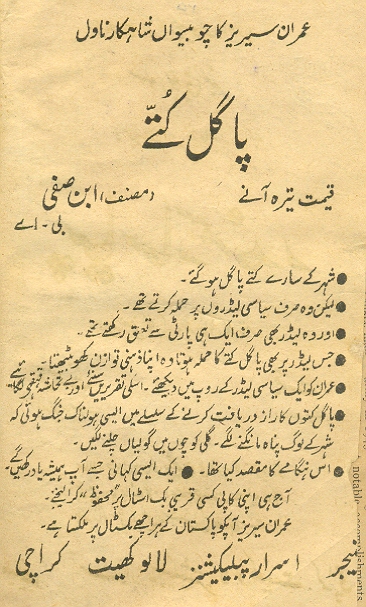 عمران سیریز کا چوبیسواں شاہکار ناول
پاگل کُتّے
قیمت تیرہ آنے (مصنف) ابن صفی
بی-اے
● شہر کے سارے کتے پاگل ہو گئے۔
● لیکن وہ صرف سیاسی لیڈروں پر حملہ کرتے تھے۔
● اور وہ لیڈر بھی صرف ایک ہی پارٹی سے تعلق رکھتے تھے۔
● جس لیڈر پر بھی پاگل کتے کا حملہ ہوتا وہ اپنا ذہنی توازن کھو بیٹھتا۔
● عمران کو ایک سیاسی لیڈر کے روپ میں دیکھئے۔ اسکی تقریریں سنئے اور بے تحاشہ قہقہے لگائیے
● پاگل کتوں کا راز دریافت کرنے کے سلسلے میں ایسی ہولناک جنگ ہوئی کہ
شہر کے لوگ پناہ مانگنے لگے۔ گلی کوچوں میں گولیاں چلنے لگیں۔
● اس ہنگامے کا مقصد کیا تھا۔ ● ایک ایسی کہانی جسے آپ ہمیشہ یاد رکھیں گے
آج ہی اپنی کاپی کسی قریبی بک اسٹال پر "محفوظ" کرا لیجئے۔
عمران سیریز آپکو پاکستان کے ہر اچھے بکسٹال پر مل سکتا ہے۔
منیجر اسرار پبلیکیشنز لالو کھیت کراچی
notable accomplishments